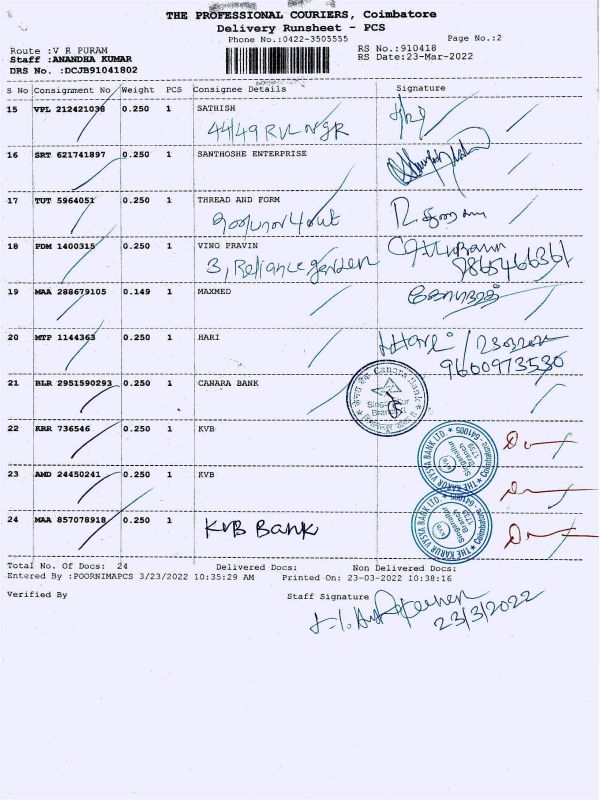 THE PROFESSIONAL COURIERS, Coimbatore
Delivery Runsheet - PCS
Phone No.:0422-3505555
Page No.:2
Route :V R PURAM
RS No.:910418
Staff :ANANDHA KUMAR
RS Date:23-Mar-2022
DRS No. :DCJB91041802
S No Consignment No Weight PCS Consignee Details Signature
15 VPL 212421038 0.250 1 SATHISH
44/49 RVL NGR
16 SRT 621741897 0.250 1 SANTHOSHE ENTERPRISE
17 TUT 5964051 0.250 1 THREAD AND FORM
18 PDM 1400315 0.250 1 VINO PRAVIN
3, Reliance garden
9865466361
19 MAA 288679105 0.149 1 MAXMED
20 MTP 1144363 0.250 1 HARI
Hari
9600973530
21 BLR 2951590293 0.250 1 CANARA BANK
Canara Bank
Branch
22 KRR 736546 0.250 1 KVB
THE KARUR VYSYA BANK LTD. Coimbatore 641005
Singanallur
Branch
1739
23 AMD 24450241 0.250 1 KVB
THE KARUR VYSYA BANK LTD. Coimbatore 641005
Singanallur
Branch
1739
24 MAA 857078918 0.250 1 KVB Bank
Total No. Of Docs: 24 Delivered Docs: Non Delivered Docs:
Entered By :POORNIMAPCS 3/23/2022 10:35:29 AM Printed On: 23-03-2022 10:38:16
Verified By Staff Signature
23/3/2022